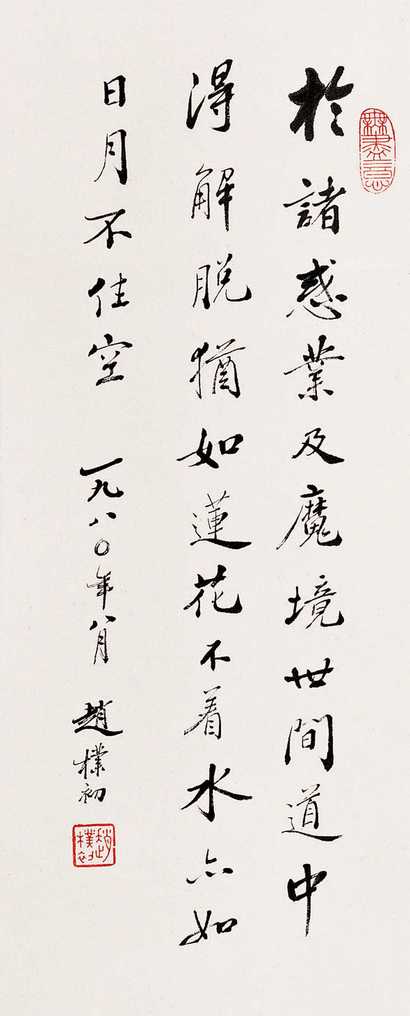 於諸惑業及魔境世間道中
得解脫猶如蓮花不着水亦如
日月不住空 一九八〇年八月 趙樸初
無盡意
趙樸初